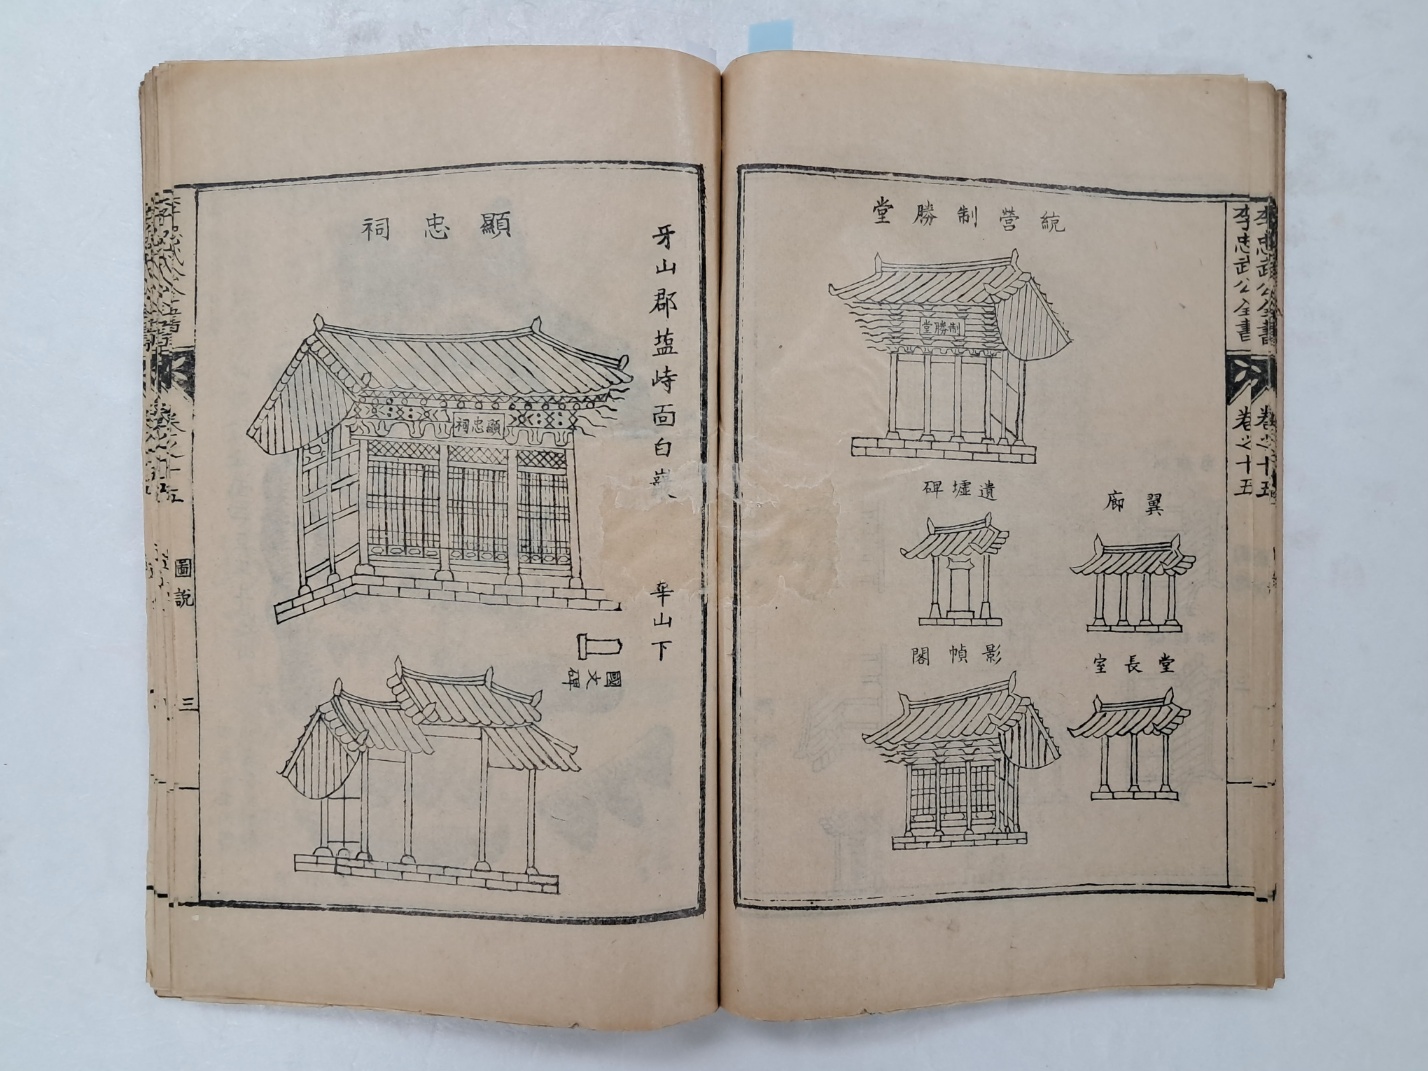 李忠武公全書
卷之十五
李忠武公全書
卷之十五
統營制勝堂
制勝堂
翼廊
遺墟碑
堂長室
影幀閣
牙山郡塩峙面白
華山下
顯忠祠
顯忠祠
國文碑
圖說
三